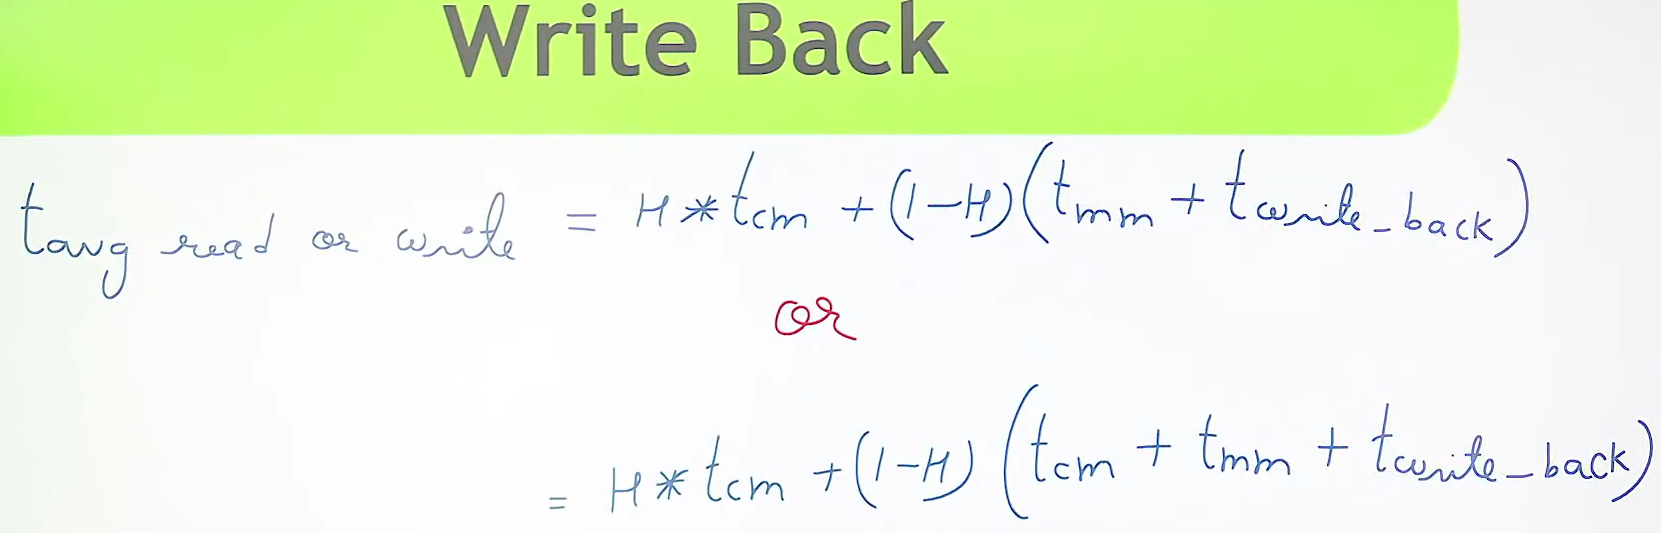 Write Back
tavg read or write = H * tcm + (1-H)(tmm + twrite_back)
or
= H * tcm + (1-H) (tcm + tmm + twrite_back)